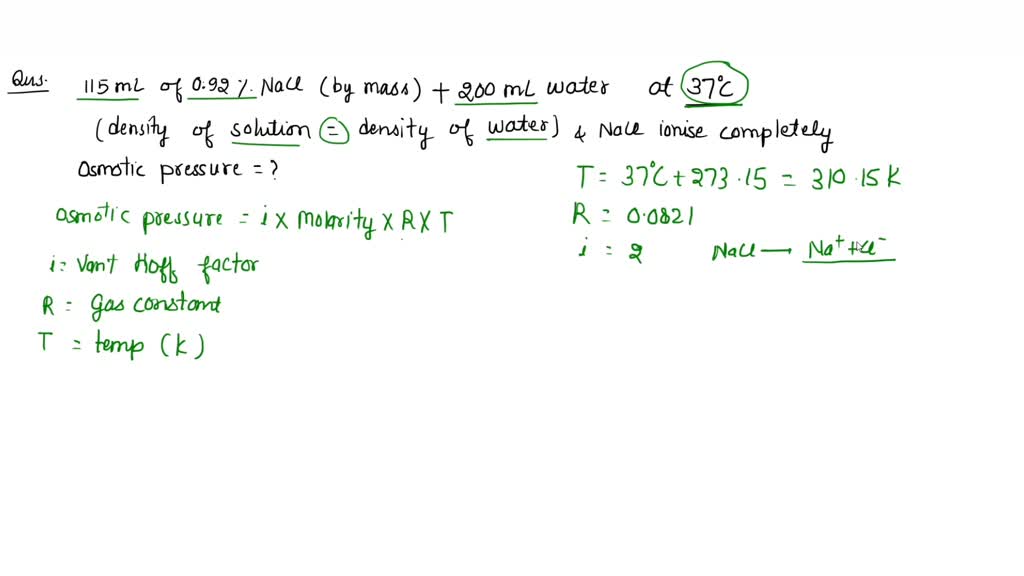 Qus. 115 mL of 0.92 % NaCl (by mass) + 200 mL water at 37°C
(density of solution = density of water) & NaCl ionise completely
Osmotic pressure = ?
T = 37°C + 273.15 = 310.15 K
Osmotic pressure = i × Molarity × R × T
R = 0.0821
i = 2 NaCl → Na⁺ + Cl⁻
i = Van't Hoff factor
R = Gas constant
T = temp (K)